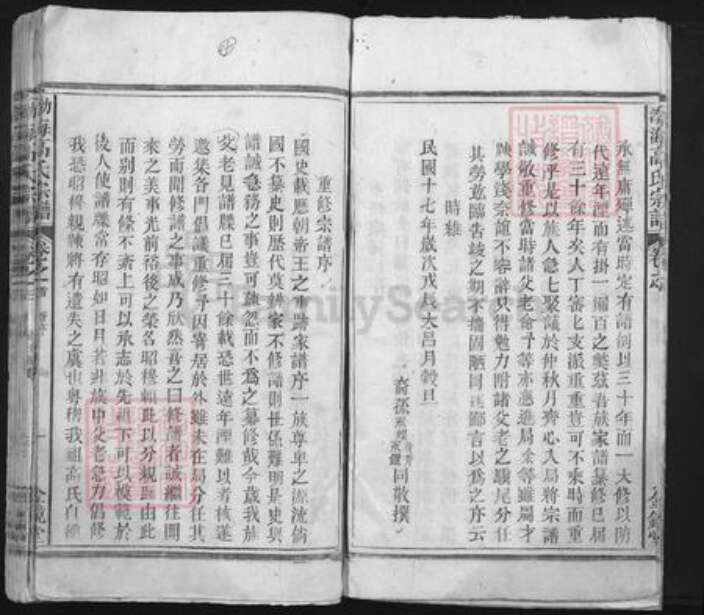 承無庸䌓述當時定有譜例以三十年而一大修以防
代遠年湮而有掛一漏百之獘茲吾族家譜纂修已屆
有三十餘年矣人丁蕃衍支派重重豈可不乘時而重
修乎是以族人急上聚議於仲秋月齊心入局將宗譜
誠敬重修當時諸父老命予等亦應進局余等雖屬才
疎學淺奈誼不容辭只得勉力附諸父老之驥尾分任
其勞意臨告竣之期不揣固陋謹述鄙言以為之序云
時維
民國十七年歲次戊辰大呂月穀旦
裔孫 同敬撰
渤海高氏宗譜
重修宗譜序
國史載歷朝帝王之事跡家譜序一族尊卑之源流倘
國不纂史則歷代莫辨家不修譜則世係難明是史與
譜誠急務之事豈可疎忽而不為之纂修哉今歲我族
父老見譜牒已屆三十餘載恐世遠年湮難以考核遂
邀集各門倡議重修予因寄居於外雖未在局分任其
勞而聞修譜之事成乃欣然喜之曰修譜者誠繼往開
來之美事光前裕後之榮名昭穆賴此以分親疎由此
而別則有條不紊上可以承志於先祖下可以模範於
後人使譜牒常存昭如日月若非族中父老急力倡修
我恐昭穆親疎將有遺失之虞也粵稽我祖高氏自
渤海高氏宗譜
FamilySearch